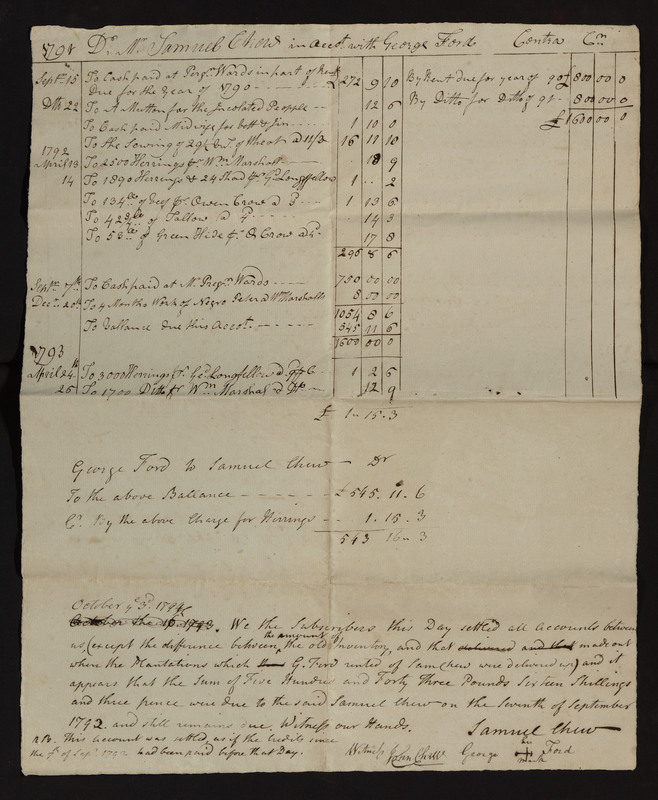 1791 Dr. Mr. Samuel Chew in Accot. with George Ford Contra Cr.
Septr. 15 To Cash paid at Wards in part of Rent
Due for the Year of 1790 - - - £ 272 9 10 By Rent due for year of 90 £ 800 00 0
Dbr. 22 To A Mutton for the Inocolated People - 12 6 By Ditto for Ditto of 91 - 800 00 0
To Cash paid Midwife for - 1 10 0 £ 1600 00 0
To the Sowing of 29½ of Wheat @ 11/3 16 11 10
1792
April 13 To 2500 Herrings pr. Wm. Marshall - 18 9
14 To 1890 Herrings & 24 Shad pr. Gd. Longfellow 1 .. 2
To 134 lb of Beef pr. Owen Crow @ 3 - 1 13 6
To 42¾ lb of Tallow @ 4d. - - - 14 3
To 53 lb of Green Hide pr. O Crow @ 4d. 17 8
295 8 6
Septr. 7th To Cash paid at Mr. Wards - - 750 00 00
Decr. 20th To 4 Months Work of Negro Peter at Wm. Marshalls 8 00 00
1054 8 6
To Ballance due this Accot. - - - 545 11 6
1600 00 0
1793
April 24th To 3000 Herrings pr. Gd. Longfellow @ 7/6 1 2 6
26 To 1700 Ditto pr. Wm. Marshal @ 7/6 - 12 9
£ 1 15 3
George Ford to Samuel Chew Dr
To the above Ballance - - - - £ 545. 11. 6
Cr. By the above Charge for Herrings - - 1. 15. 3
543 16 3
October ye 3d. 1794
October the 1793. We the Subscribers this Day settled all accounts between
us (except the difference between the amount of the old Inventory, and that delivered and that made out
when the Plantations which G. Ford rented of Sam Chew were delivered up) and it
appears that the Sum of Five Hundred and Forty Three Pounds Sixteen Shillings
and three pence were due to the said Samuel Chew on the Seventh of September
1792 and still remains due. Witness our Hands.
NB. This account was settled, as if the Credits since
the 7th of Sepr. 1792 had been paid before that Day.
Samuel Chew
Witness John Chew George his + mark Ford